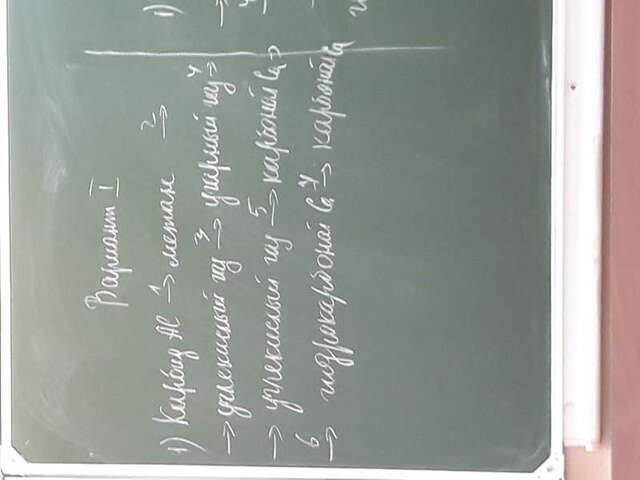 Вариант I
1) Карбид Al →1 метан 2→
→ углекислый газ 3→ угарный газ 4→
→ углекислый газ 5→ карбонат Ca →
6→ гидрокарбонат Ca 7→ карбонат Ca
1)